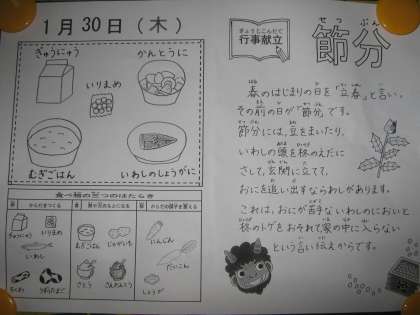 1月30日（木）
ぎゅうにゅう
かんとうに
いりまめ
むぎごはん
いわしのしょうがに
食べ物の三つのはたらき
からだをつくる
熱や力のもとになる
からだの調子を整える
ぎゅうにゅう
いりまめ
いわし
ちくわ
うずらたまご
むぎごはん
じゃがいも
さとう
こんにゃく
にんじん
だいこん
しょうが
ぎょうじこんだて
行事献立
せつ ぶん
節分
春のはじまりの日を「立春」と言い、
その前の日が「節分」です。
節分には、豆をまいたり、
いわしの頭を柊のえだに
さして、玄関に立てて、
おにを追い出すならわしがあります。
これは、おにが苦手ないわしのにおいと
柊のトゲをおそれて家の中に入らない
という言い伝えからです。